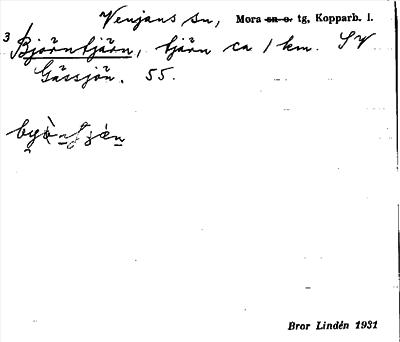 Venjans sn, Mora sn o. tg, Kopparb. l.
3 Björntjärn, tjärn ca 1 km. SV
Gåssjön. 55.
Bror Lindén 1931